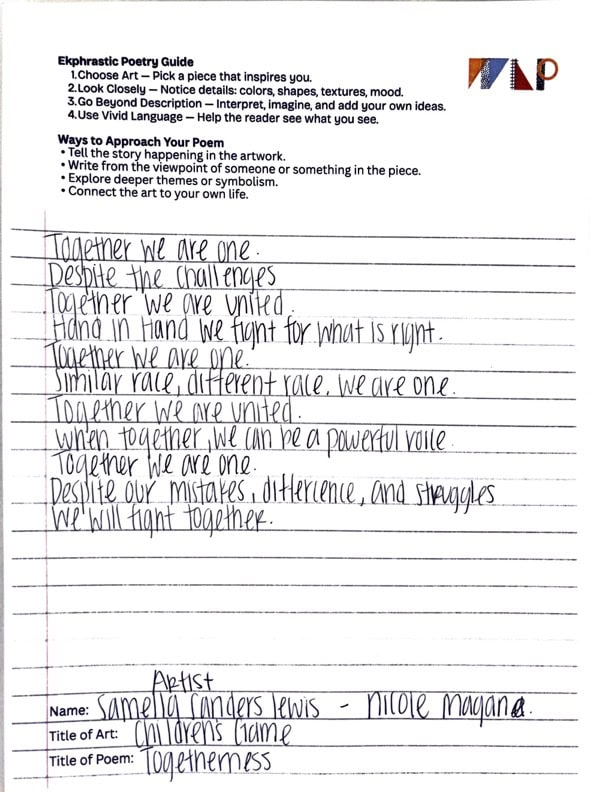 Ekphrastic Poetry Guide
1.Choose Art – Pick a piece that inspires you.
2.Look Closely – Notice details: colors, shapes, textures, mood.
3.Go Beyond Description – Interpret, imagine, and add your own ideas.
4.Use Vivid Language – Help the reader see what you see.
Ways to Approach Your Poem
• Tell the story happening in the artwork.
• Write from the viewpoint of someone or something in the piece.
• Explore deeper themes or symbolism.
• Connect the art to your own life.
Together we are one.
Despite the challenges
Together we are united.
Hand in Hand we fight for what is right.
Together we are one.
Similar race, different race, we are one.
Together we are united.
when together, we can be a powerful voice.
Together we are one.
Despite our mistakes, differience, and struggles
we will fight together.
Artist
Name: Samella Sanders lewis - Nicole Magana.
Title of Art: Children's Game
Title of Poem: Togetherness